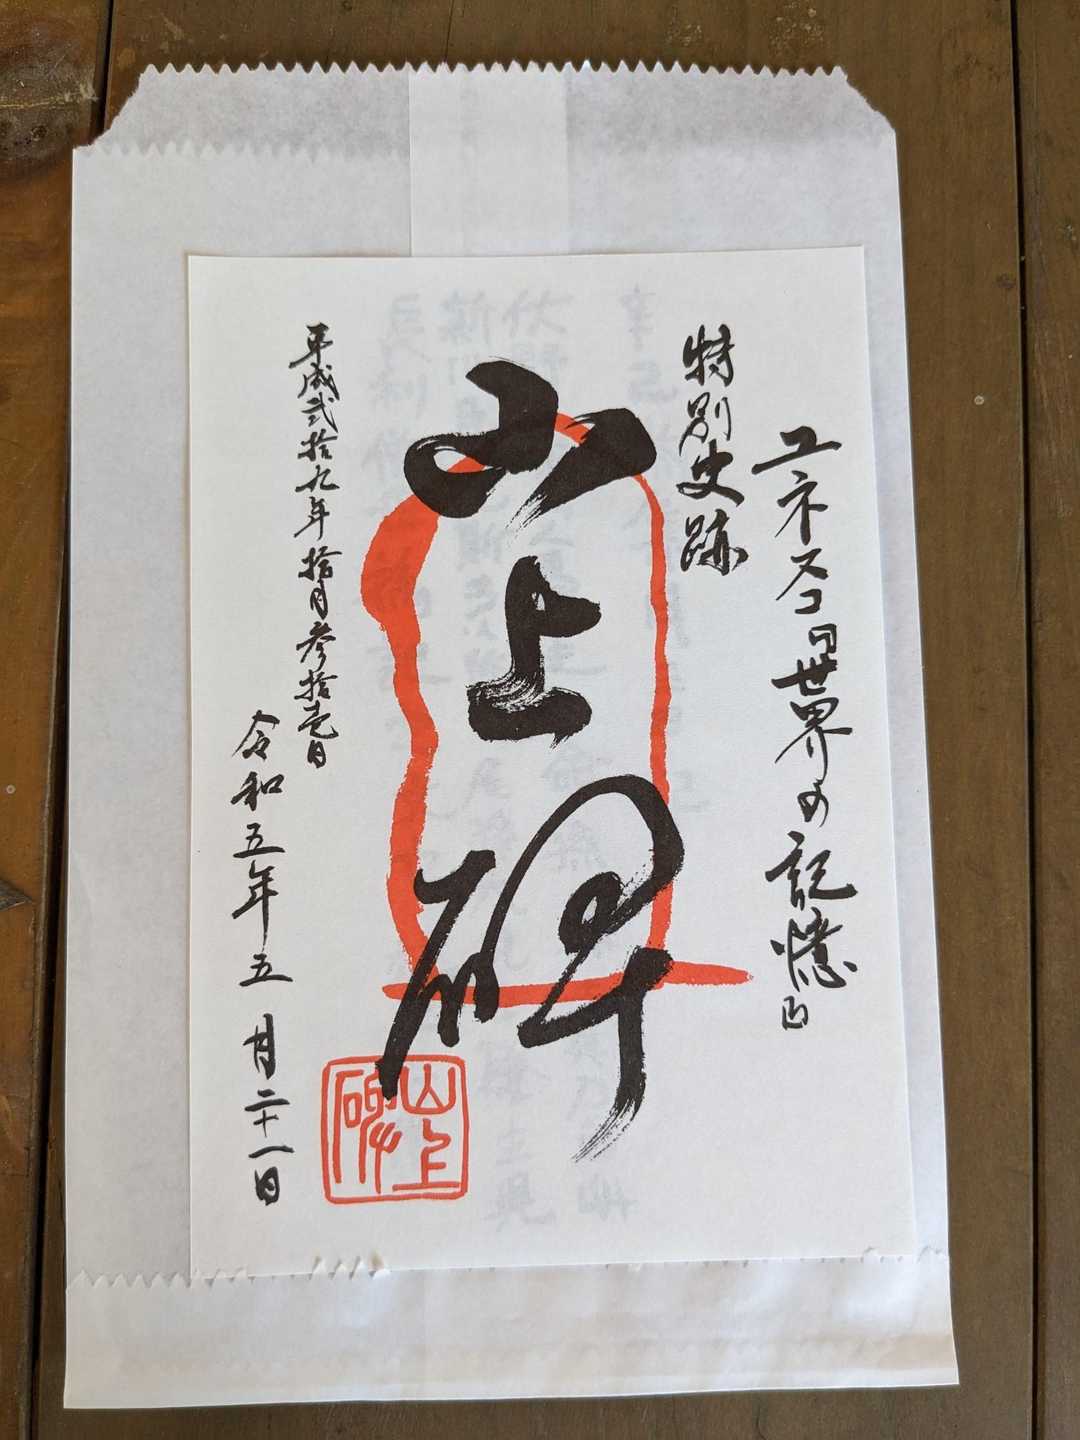 ユネスコ「世界の記憶」
特別史跡
山上碑
平成弐拾九年拾月参拾壱日
令和五年五月二十一日
山上碑